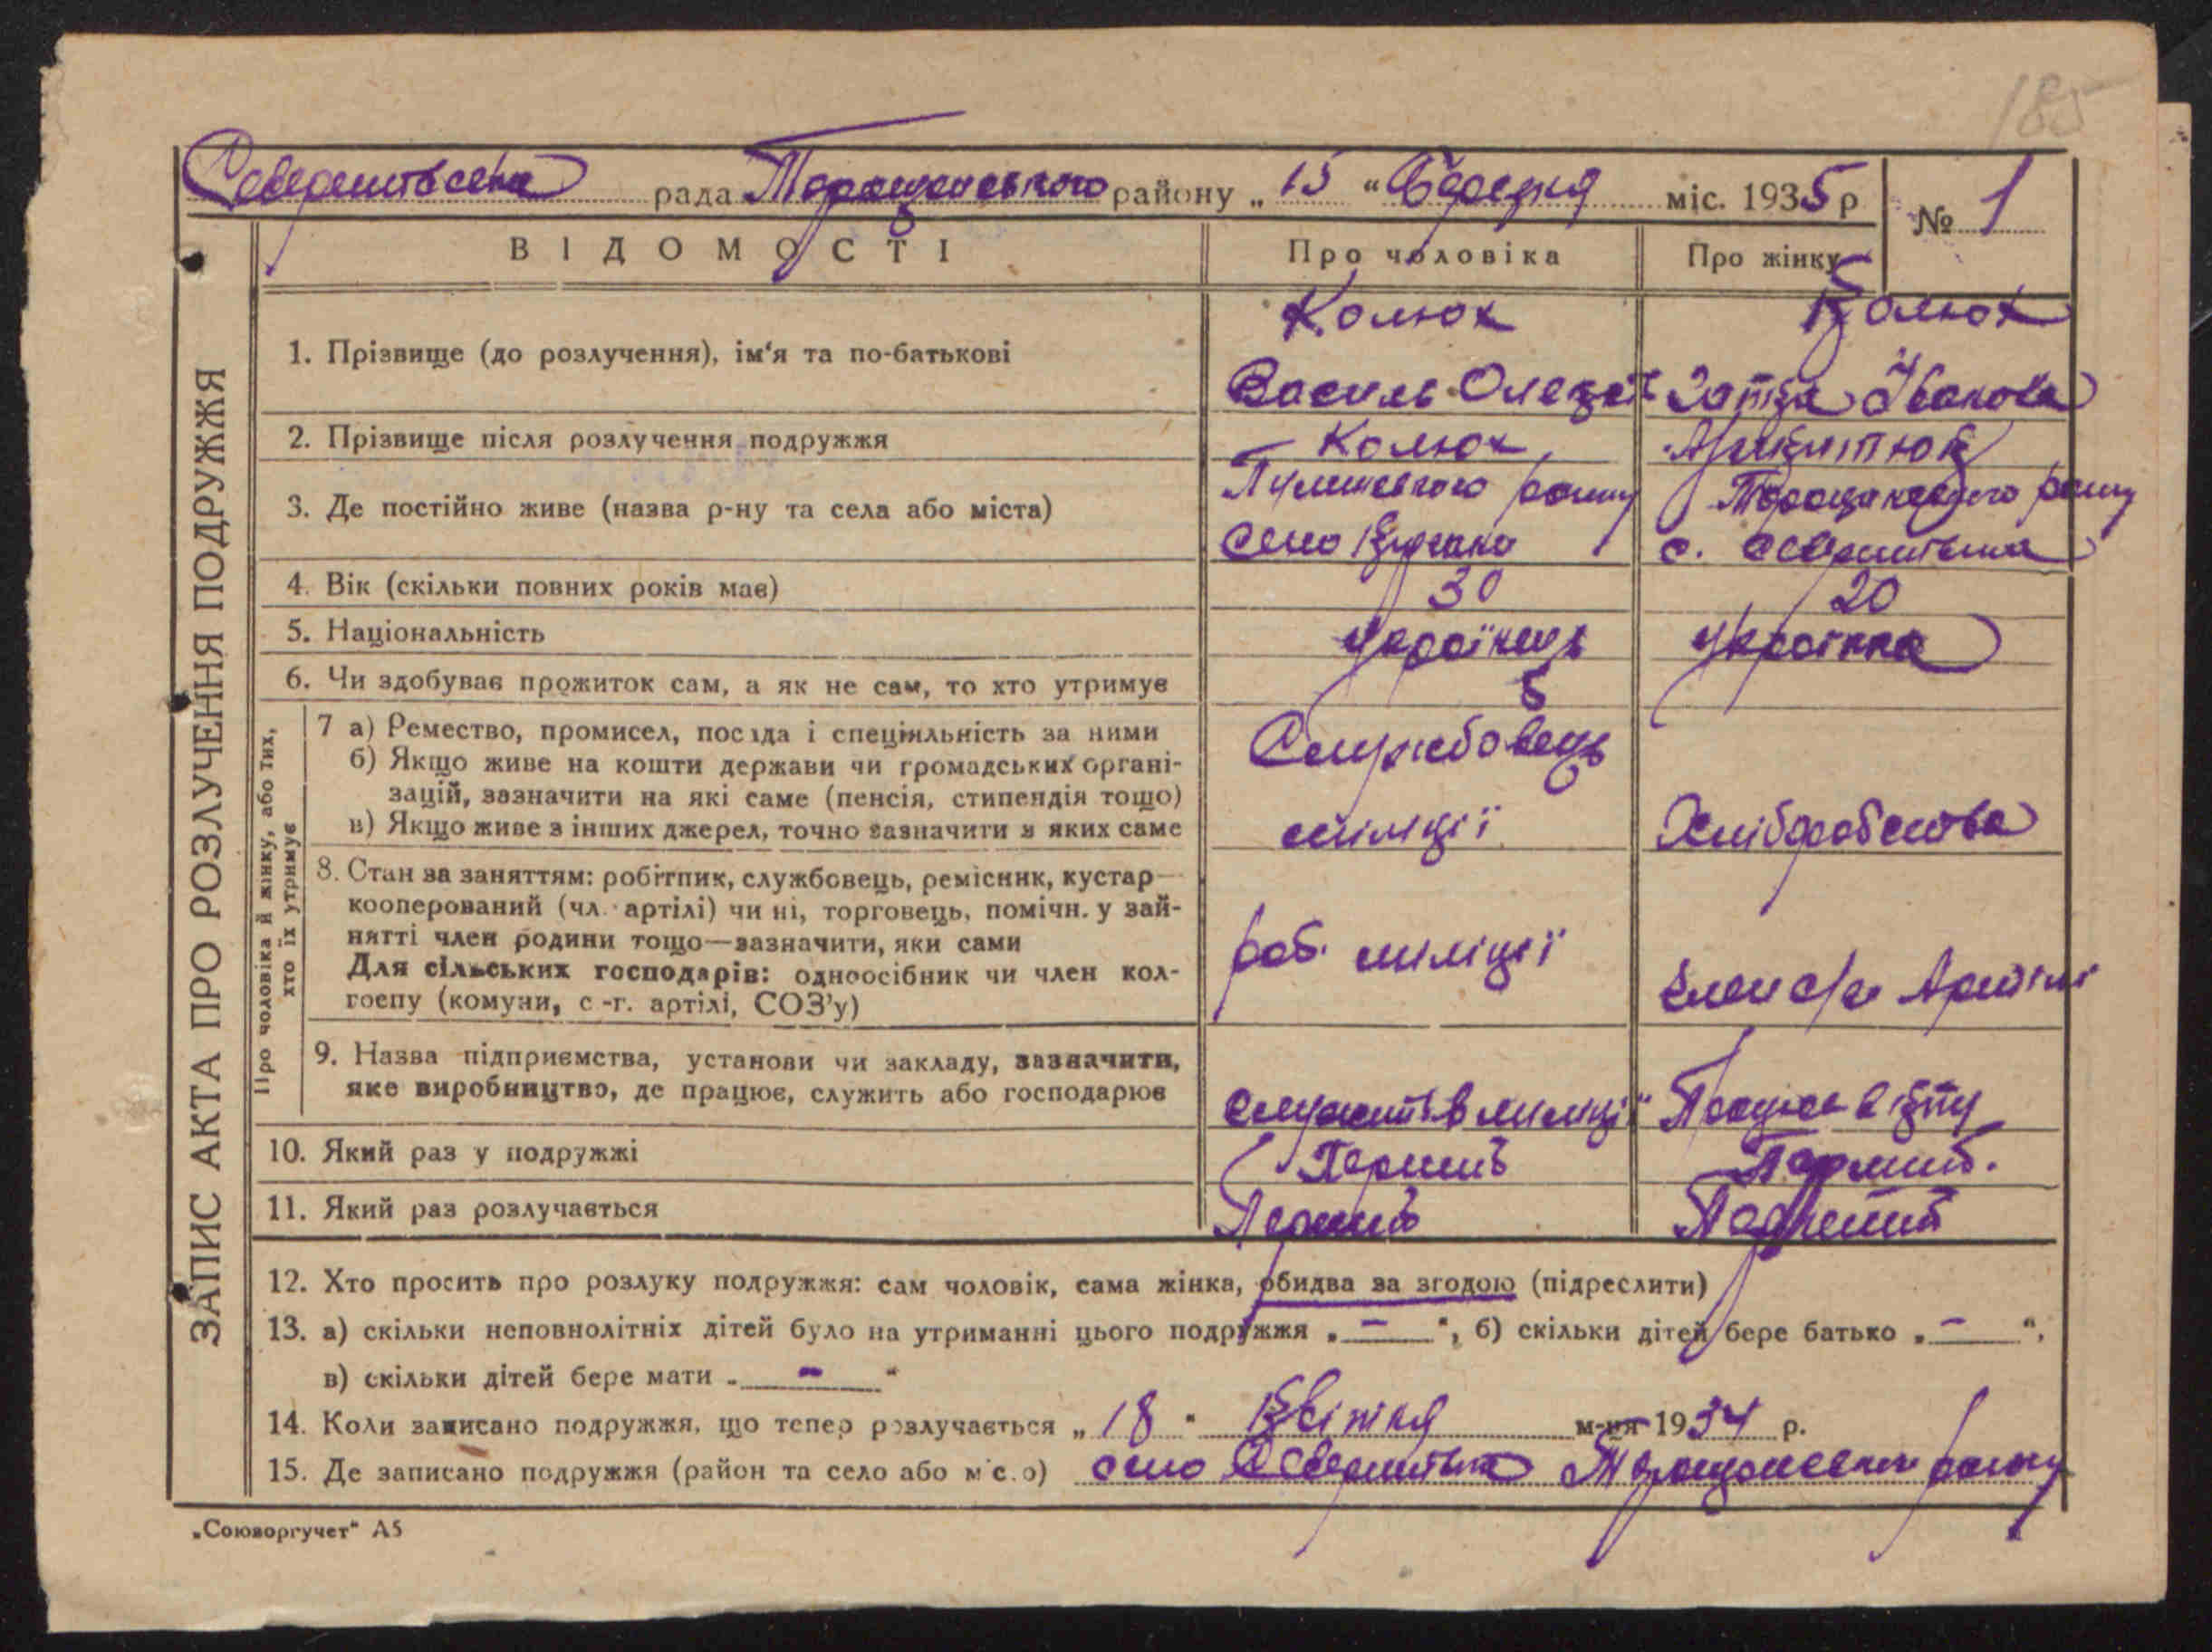 185
рада Таращанського району „ 15 “ Березня міс. 1935 р
№ 1
ВІДОМОСТІ
Про чоловіка
Про жінку
1. Прізвище (до розлучення), ім'я та по-батькові
Колюх
Василь
Колюх
Іванова
2. Прізвище після розлучення подружжя
Колюх
3. Де постійно живе (назва р-ну та села або міста)
село
Таращанського
с.
4. Вік (скільки повних років має)
30
20
5. Національність
Українець
Українка
6. Чи здобуває прожиток сам, а як не сам, то хто утримує
Про чоловіка й жінку, або тих,
хто їх утримує
7 а) Ремество, промисел, посада і спеціяльність за ними
б) Якщо живе на кошти держави чи громадських органі-
зацій, зазначити на які саме (пенсія, стипендія тощо)
в) Якщо живе з інших джерел, точно зазначити з яких саме
Службовець
міліції
Хліборобства
8. Стан за заняттям: робітник, службовець, ремісник, кустар
кооперований (чл. артілі) чи ні, торговець, помічн. у зай-
нятті член родини тощо—зазначити, яки сами
Для сільських господарів: одноосібник чи член кол-
госпу (комуни, с-г. артілі, СОЗ'у)
роб. міліції
Член с/г Артілі
9. Назва підприємства, установи чи закладу, зазначити,
яке виробництво, де працює, служить або господарює
Служить в міліції
Працює в
10. Який раз у подружжі
Перший
Перший.
11. Який раз розлучається
Перший
Перший
12. Хто просить про розлуку подружжя: сам чоловік, сама жінка, обидва за згодою (підреслити)
13. а) скільки неповнолітніх дітей було на утриманні цього подружжя „ – “, б) скільки дітей бере батько „ – “,
в) скільки дітей бере мати „ – “
14. Коли записано подружжя, що тепер розлучається „ 18 “ Квітня м-ця 1934 р.
15. Де записано подружжя (район та село або місто) село Таращанського району
ЗАПИС АКТА ПРО РОЗЛУЧЕННЯ ПОДРУЖЖЯ
„Союзоргучет“ А5